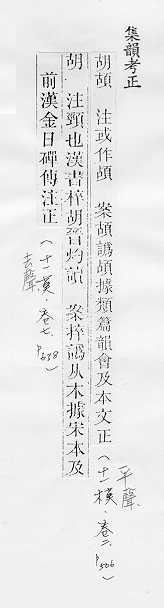 集韻考正
胡頶　注或作頶　案頶譌頶據類篇韻會及本文正（十一模．卷二 P566）平聲
胡　注頸也漢書捽胡晉灼讀　案捽譌从木據宋本及
前漢金日磾傳注正（十一莫．卷七 P638）去聲